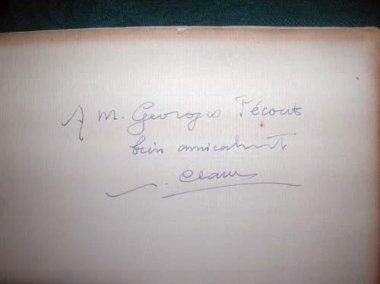 A M. Georges Pécouts
bien amicalement.